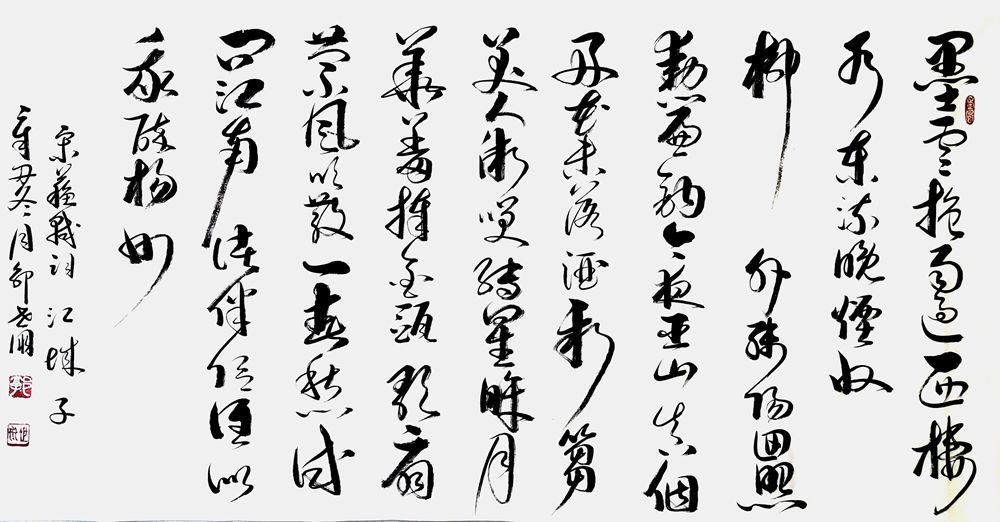 墨雲拖雨過西樓
水東流晚煙收
柳外殘陽回照
動簾鉤今夜巫山真個
好花未落酒新篘
美人微笑轉星眸月
華羞捧金甌歌扇
縈風吹散一春愁試
問江南諸伴侶誰似
我醉楊州
宋蘇軾詞江城子
辛丑冬月